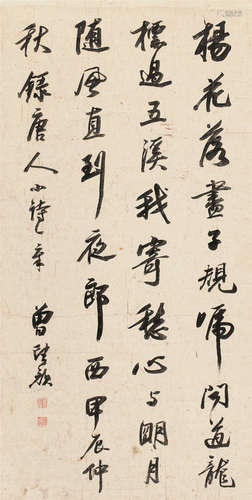 楊花落盡子規啼聞道龍
標過五溪我寄愁心与明月
随風直到夜郎西甲辰仲
秋録唐人小詩
曾